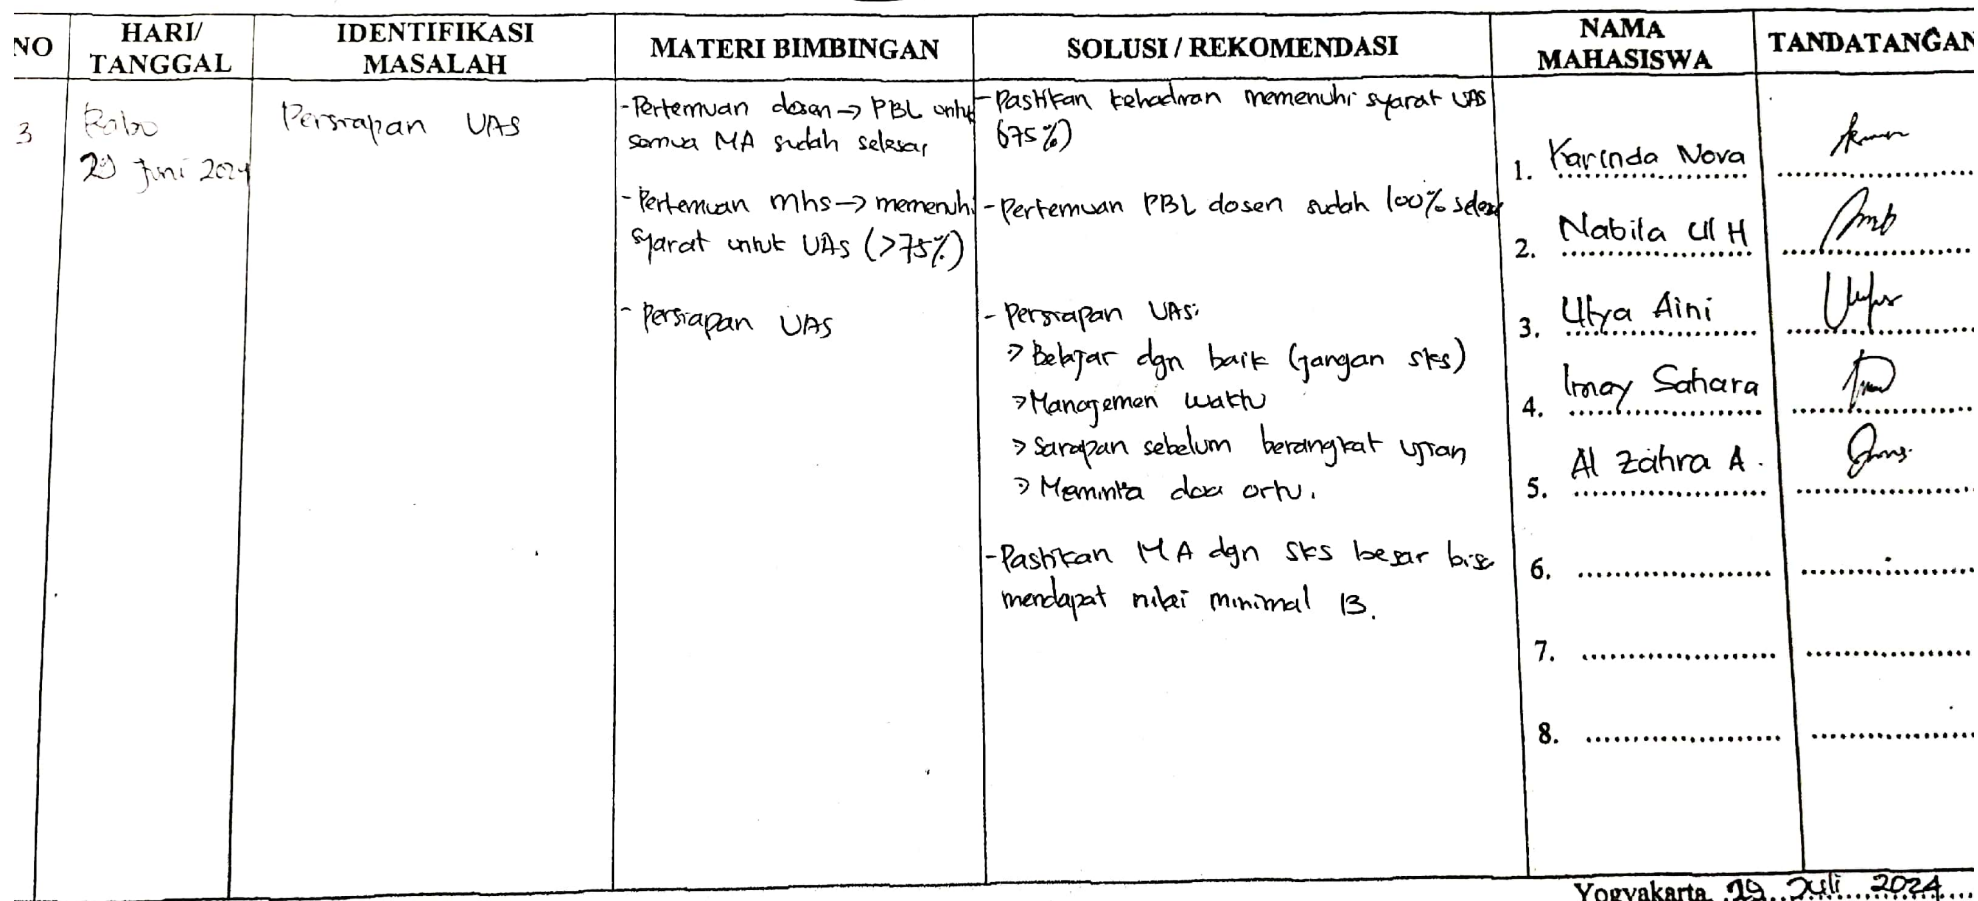 NO
HARI/
TANGGAL
IDENTIFIKASI
MASALAH
MATERI BIMBINGAN
SOLUSI / REKOMENDASI
NAMA
MAHASISWA
TANDATANGAN
3
Rabo
29 Juni 2024
Persiapan UAS
- Pertemuan dosen → PBL untuk
semua MA sudah selesai
- Pertemuan mhs → memenuhi
syarat untuk UAS (>75%)
- Persiapan UAS
- Pastikan kehadiran memenuhi syarat UAS
(75%)
- Pertemuan PBL dosen sudah 100% selesai
- Persiapan UAS:
> Belajar dgn baik (jangan sks)
> Managemen waktu
> Sarapan sebelum berangkat ujian
> Meminta doa ortu.
- Pastikan MA dgn sks besar bisa
mendapat nilai minimal B.
1. Karinda Nova
2. Nabila Ul H
3. Ulya Aini
4. Imay Sahara
5. Al Zahra A.
6.
7.
8.
Yogyakarta 29 Juli 2024